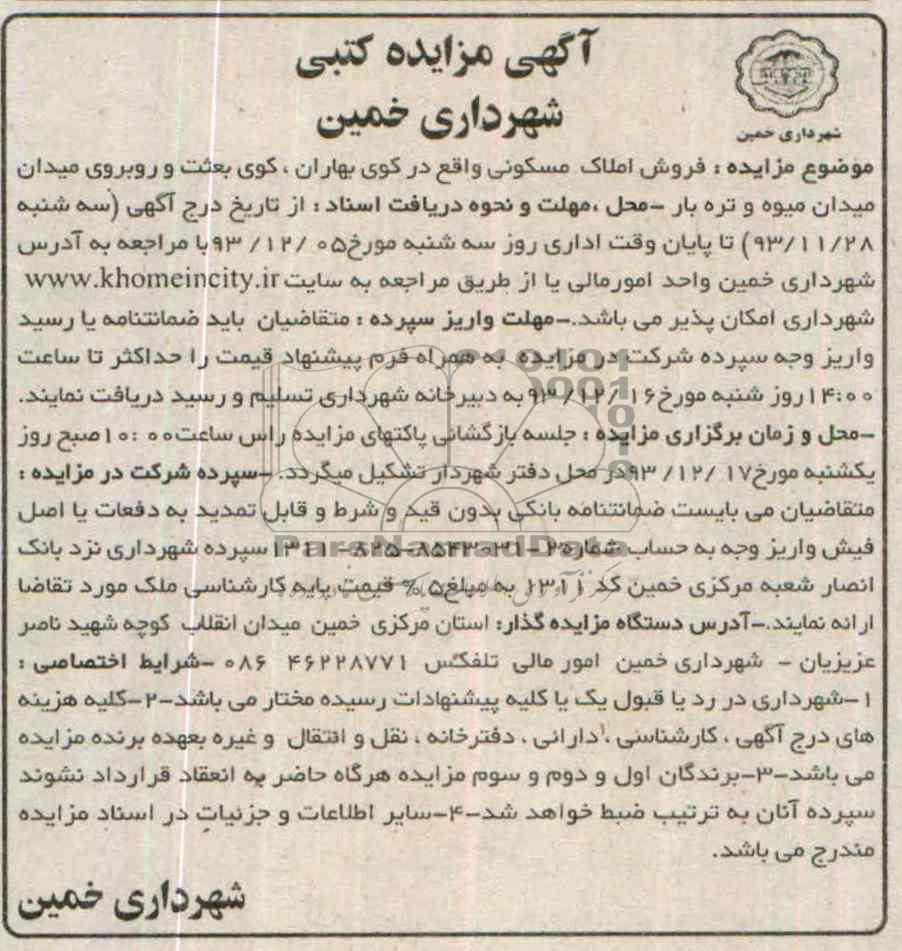 آگهی مزایده کتبی
شهرداری خمین
شهرداری خمین
موضوع مزایده : فروش املاک مسکونی واقع در کوی بهاران ، کوی بعثت و روبروی میدان
میدان میوه و تره بار -محل ،مهلت و نحوه دریافت اسناد : از تاریخ درج آگهی (سه شنبه
۹۳/۱۱/۲۸) تا پایان وقت اداری روز سه شنبه مورخ۰۵ /۱۲/ ۹۳با مراجعه به آدرس
شهرداری خمین واحد امورمالی یا از طریق مراجعه به سایت www.khomeincity.ir
شهرداری امکان پذیر می باشد.-مهلت واریز سپرده : متقاضیان باید ضمانتنامه یا رسید
واریز وجه سپرده شرکت در مزایده به همراه فرم پیشنهاد قیمت را حداکثر تا ساعت
۱۴:۰۰روز شنبه مورخ۱۶ /۱۲/ ۹۳به دبیرخانه شهرداری تسلیم و رسید دریافت نمایند.
-محل و زمان برگزاری مزایده : جلسه بازگشائی پاکتهای مزایده راس ساعت۰۰ :۱۰صبح روز
یکشنبه مورخ۱۷ /۱۲/ ۹۳در محل دفتر شهردار تشکیل میگردد. -سپرده شرکت در مزایده :
متقاضیان می بایست ضمانتنامه بانکی بدون قید و شرط و قابل تمدید به دفعات یا اصل
فیش واریز وجه به حساب شماره سپرده شهرداری نزد بانک
انصار شعبه مرکزی خمین کد ۱۳۱۱ به مبلغ۵% قیمت پایه کارشناسی ملک مورد تقاضا
ارائه نمایند.-آدرس دستگاه مزایده گذار: استان مرکزی خمین میدان انقلاب کوچه شهید ناصر
عزیزیان - شهرداری خمین امور مالی تلفکس ۴۶۲۲۸۷۷۱ ۰۸۶ -شرایط اختصاصی :
۱-شهرداری در رد یا قبول یک یا کلیه پیشنهادات رسیده مختار می باشد-۲-کلیه هزینه
های درج آگهی ، کارشناسی ، دارائی ، دفترخانه ، نقل و انتقال و غیره بعهده برنده مزایده
می باشد-۳-برندگان اول و دوم و سوم مزایده هرگاه حاضر به انعقاد قرارداد نشوند
سپرده آنان به ترتیب ضبط خواهد شد-۴-سایر اطلاعات و جزئیات در اسناد مزایده
مندرج می باشد.
شهرداری خمین
ParsNamadData